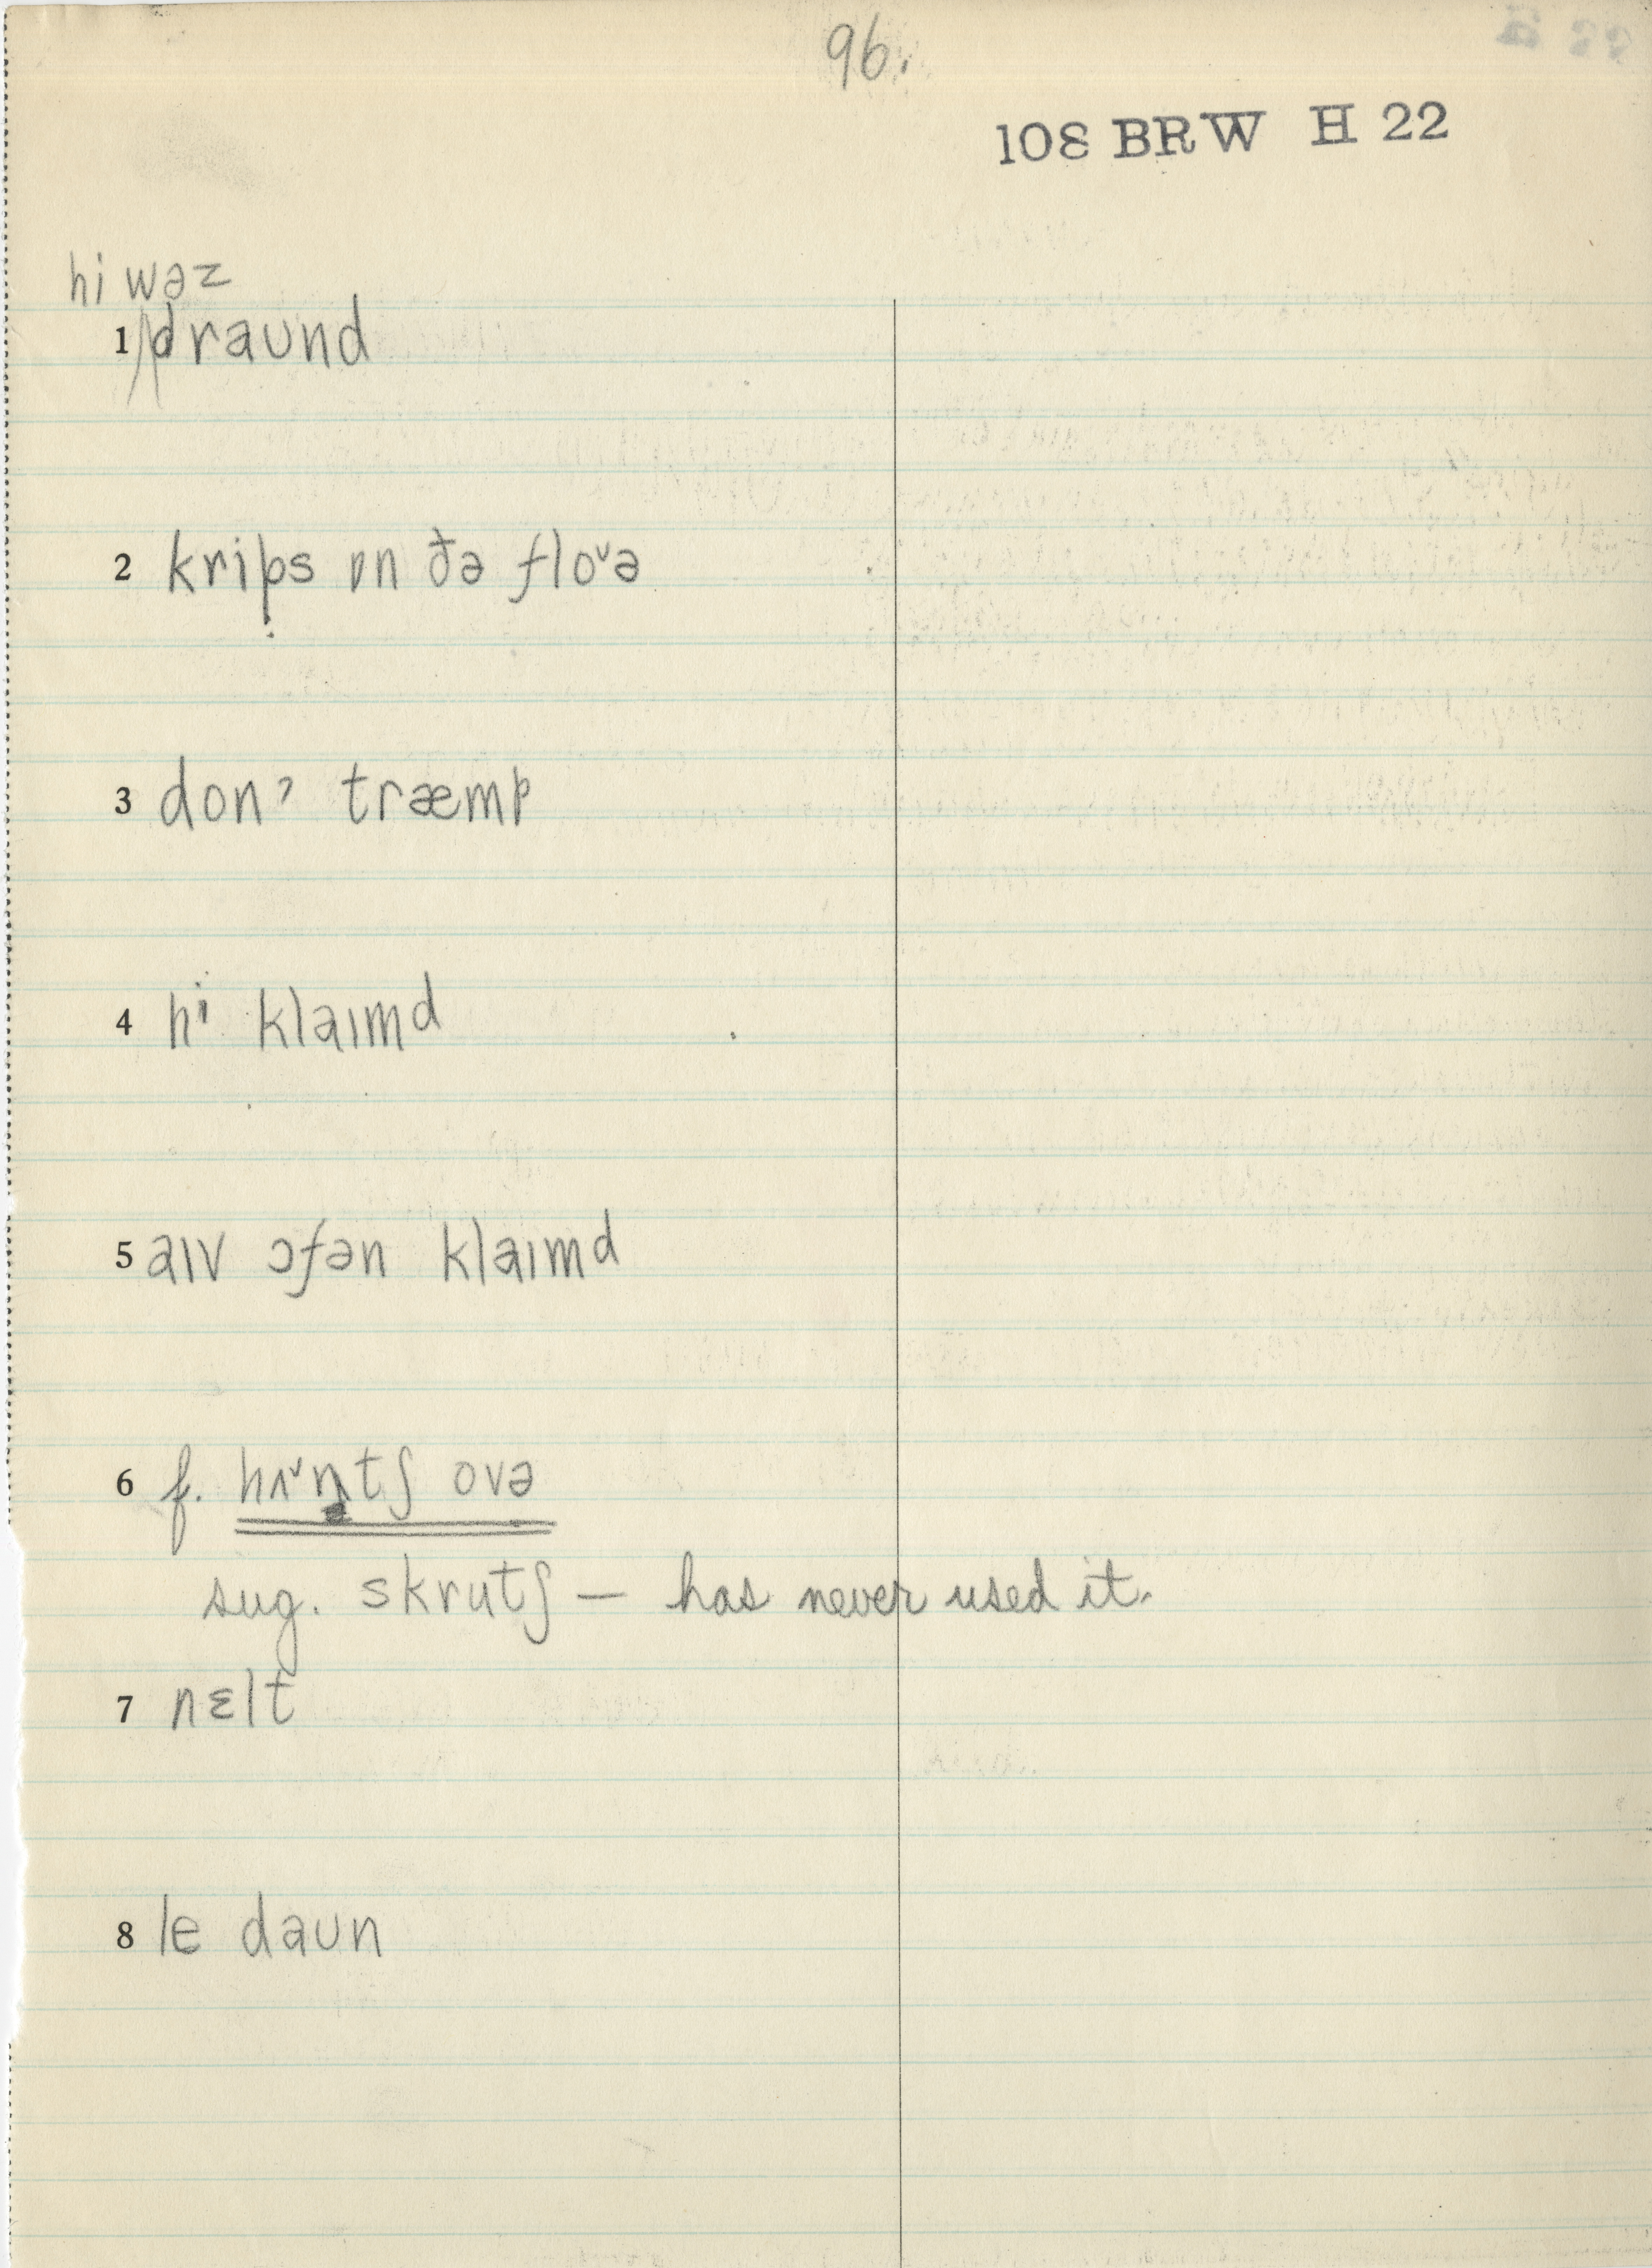 96.
108 BRW H 22
hi wəz
1 draʊnd
2 krips ɒn ðə floˇə
3 donˀ træmp
4 hi klaɪmd
5 aɪv ɔfən klaɪmd
6 f. hʌˇntʃ ovə
sug. skrutʃ — has never used it.
7 nɛlt
8 le daʊn